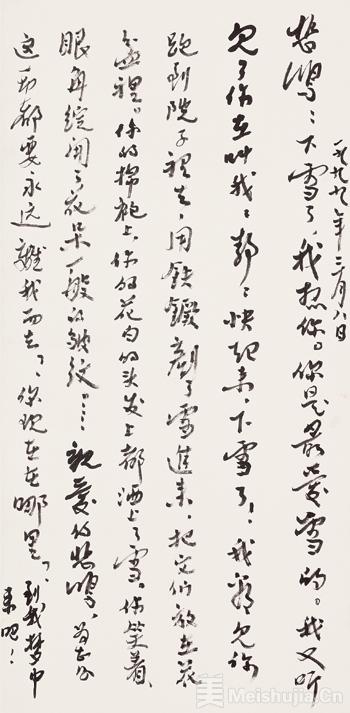 一九九九年三月八日
悲鸿：下雪了，我想你。你是最爱雪的。我又听
见了你在叫我：静：快起来，下雪了！，我看见你
跑到院子裡去，用铁锻剷了雪進来，把它们放在花
盆裡。你的棉袍上、你的花白的头发上都洒上了雪。你笑着、
眼角绽開了花朵一般的皱纹……親爱的悲鸿、
这一切都要永远離我而去？、你现在在哪里？、到我梦中
来吧！
美 Meishujia.Cn